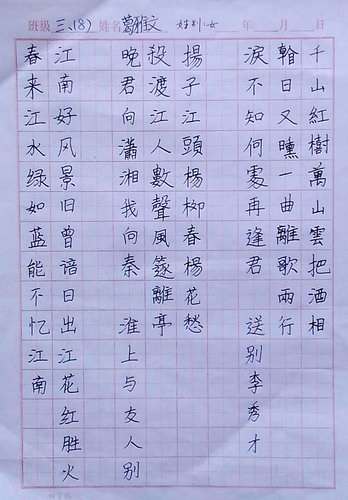 班级 三、(8) 姓名 葛雅文 性别:女 年 月 日
千山紅樹萬山雲把酒相
日又曛一曲離歌兩行
淚不知何處再逢君 送别李秀才
揚子江頭楊柳春楊花愁
殺渡江人數聲風篴離亭
晚君向瀟湘我向秦 淮上与友人别
江南好风景旧曾谙日出江花红胜火
春来江水绿如蓝能不忆江南